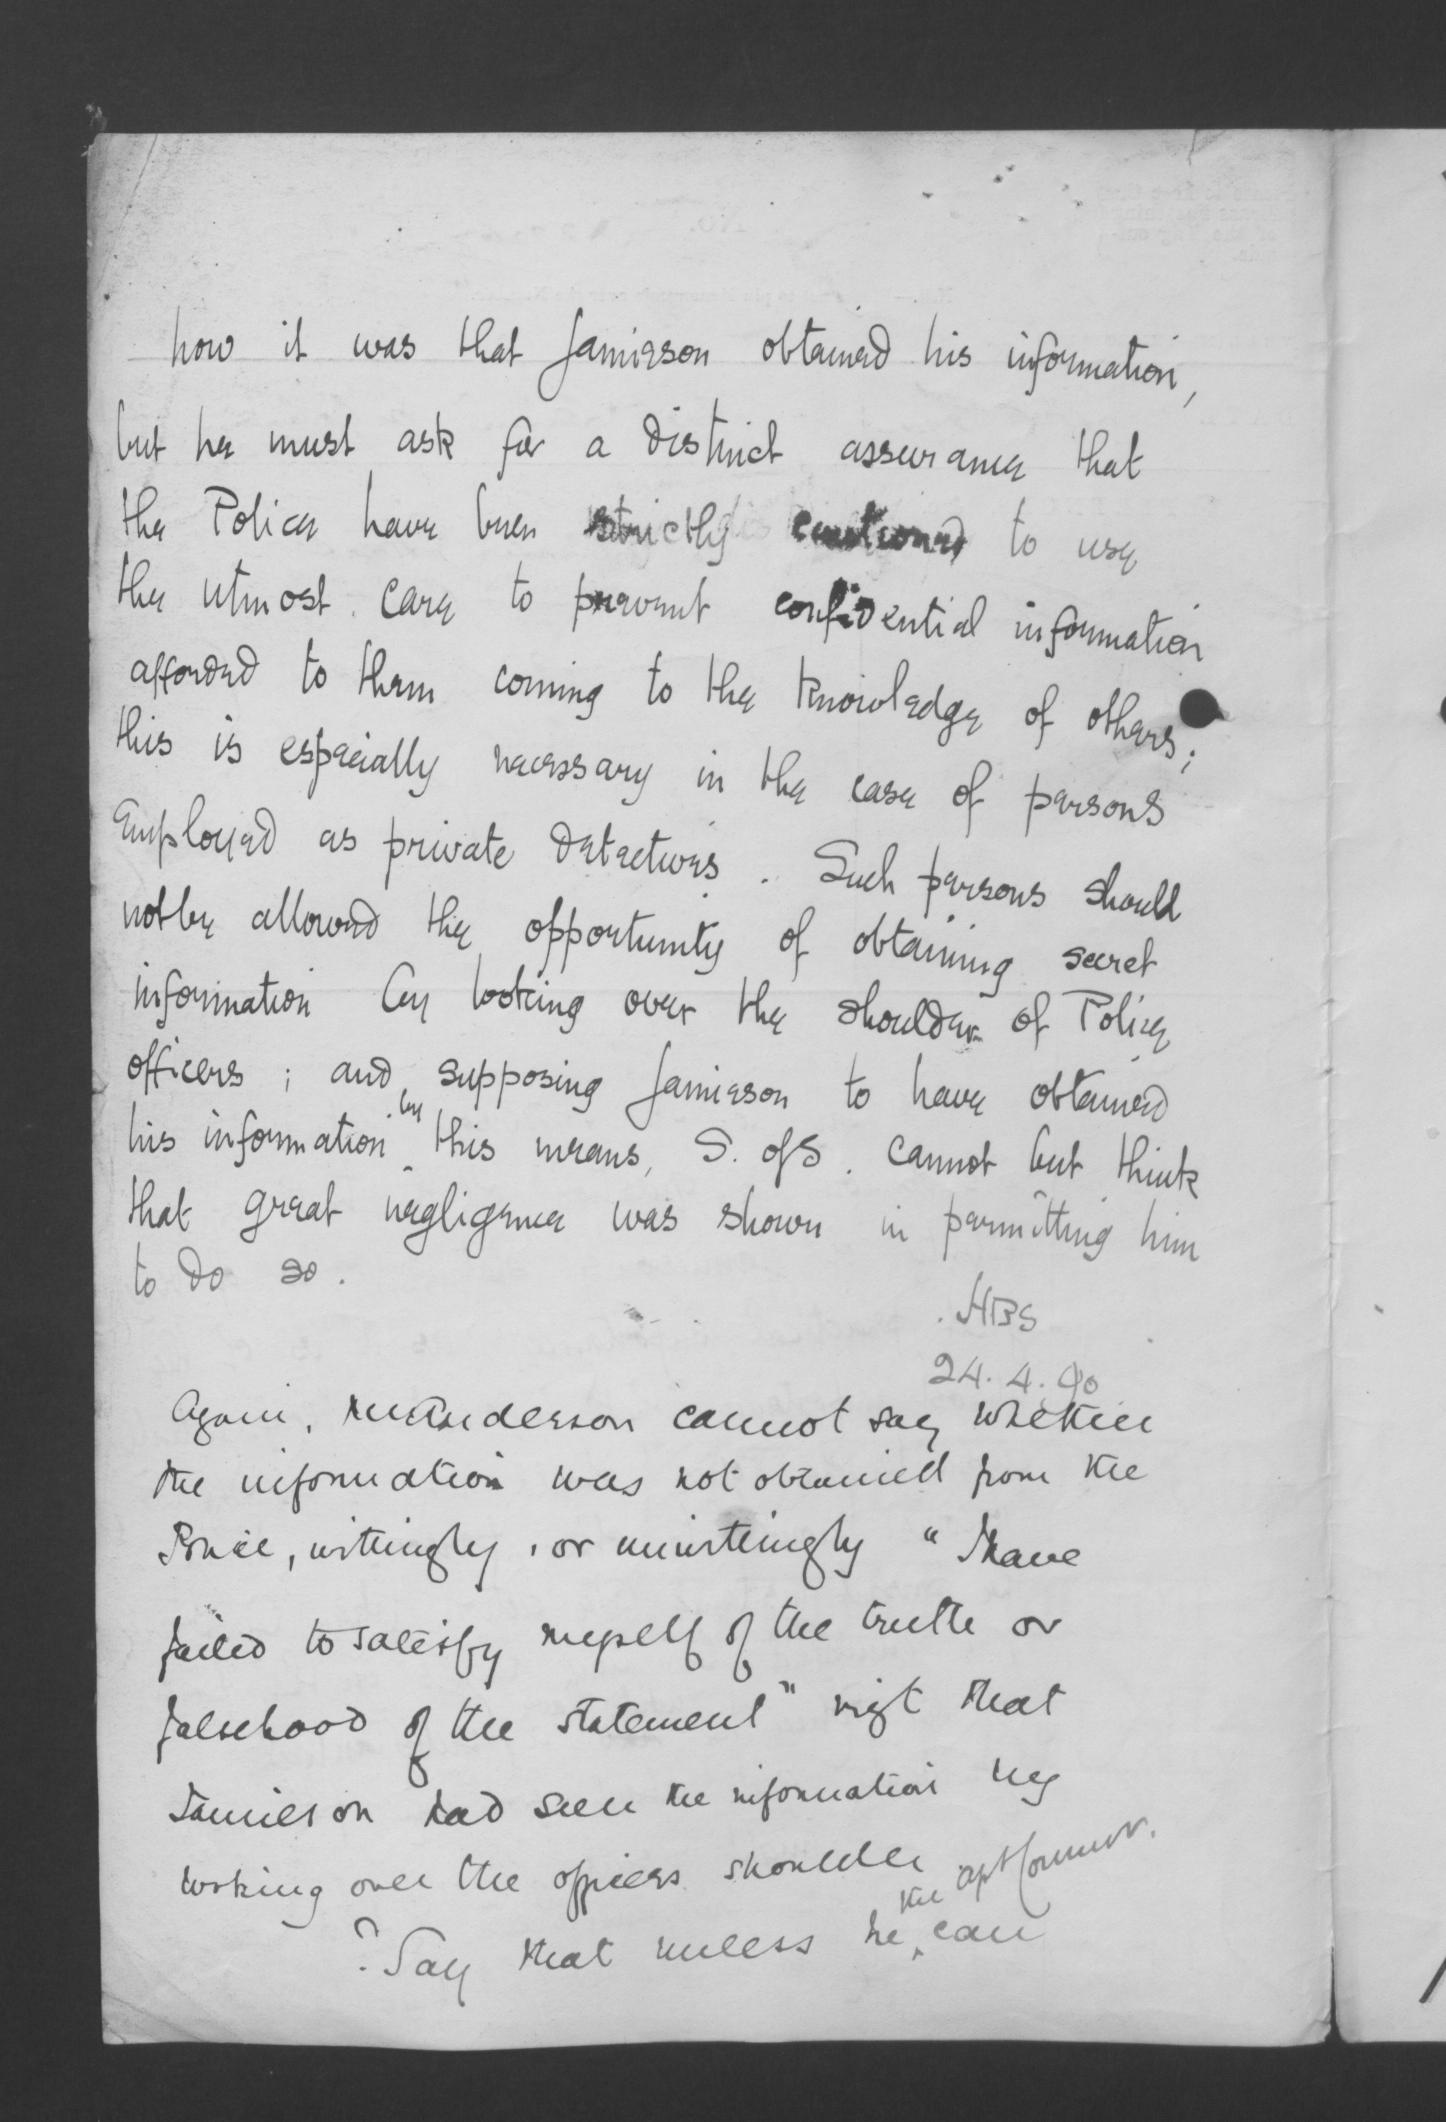 how it was that Jamieson obtained his information,
but he must ask for a distinct assurance that
the Police have been strictly cautioned to use
the utmost care to prevent confidential information
afforded to them coming to the knowledge of others;
this is especially necessary in the case of persons
employed as private detectives. Such persons should
not be allowed the opportunity of obtaining secret
information by looking over the shoulder of Police
officers; and supposing Jamieson to have obtained
his information by this means, S. of S. cannot but think
that great negligence was shown in permitting him
to do so.
HBS
24.4.90
Again, Mr Anderson cannot say whether
the information was not obtained from the
Police, wittingly, or unwittingly "I have
failed to satisfy myself of the truth or
falsehood of the statement" that
Jamieson had seen the information by
looking over the officers shoulder
the Asst Commr.
? Say that unless he can